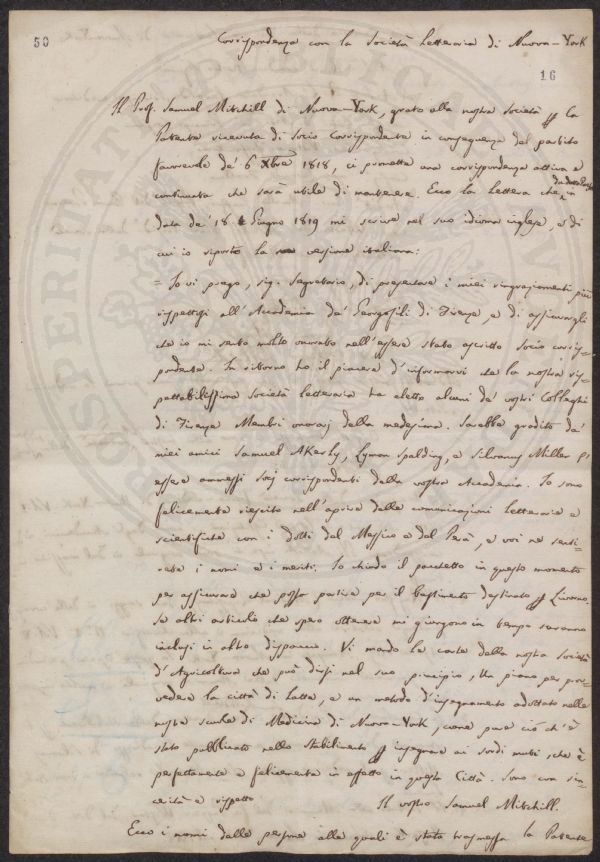 50
Corrispondenza con la Società Letteraria di Nuova-York
16
Il Prof. Samuel Mitchill di Nuova-York, grato alla nostra Società pr la
Patente ricevuta di Socio Corrispondente in conseguenza del partito
favorevole de' 6 Xbre 1818, ci promette una corrispondenza attiva e
continuata che sarà utile di mantenere. Ecco la Lettera che in
data de' 18 Giugno 1819 mi scrive nel suo idioma inglese, e di
cui io riporto la versione italiana:
= Io vi prego, sig. Segretario, di presentare i miei ringraziamenti più
rispettosi all'Accademia de' Georgofili di Firenze, e di assicurargli
che io mi sento molto onorato nell'essere stato ascritto Socio corris-
pondente. In ritorno ho il piacere d'informarvi che la nostra ris-
pettabilissima Società Letteraria ha eletto alcuni de' vostri Colleghi
di Firenze Membri onorarj della medesima. Sarebbe gradito da'
miei amici Samuel Akerly, Lyman Spalding, e Silvanus Miller d'
essere ammessi Socj corrispondenti della vostra Accademia. Io sono
felicemente riescito nell'aprire delle comunicazioni letterarie e
scientifiche con i dotti del Messico e del Perù, e voi ne senti-
rete i nomi e i meriti. Io chiudo il pacchetto in questo momento
per assicurare che possa partire per il bastimento destinato pr Livorno.
Se altri articoli che spero ottenere mi giungono in tempo saranno
inclusi in altro dispaccio. Vi mando le carte della nostra Società
d'Agricoltura che può dirsi nel suo principio, Un piano per prov-
vedere la città di Latte, e un metodo d'insegnamento adottato nelle
nostre scuole di Medicina di Nuova-York, come pure ciò ch'è
stato pubblicato nello stabilimento pr insegnare ai sordi muti, che è
perfettamente e felicemente in effetto in questa Città. Sono con sin-
cerità e rispetto
Il vostro Samuel Mitchill.
Ecco i nomi delle persone alle quali è stata trasmessa la Patente